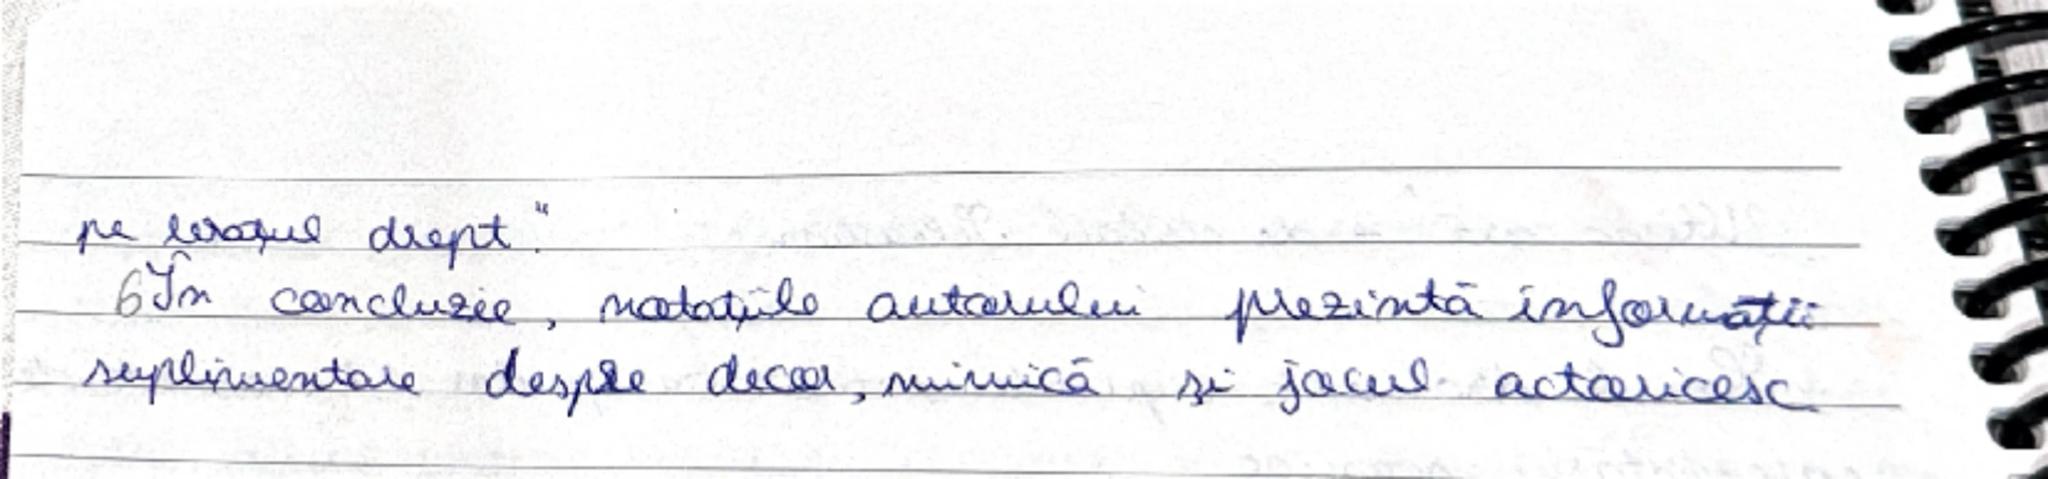 pe brațul drept."
6 În concluzie, notațiile autorului prezintă informații
suplimentare despre decor, mimică și jocul actoricesc